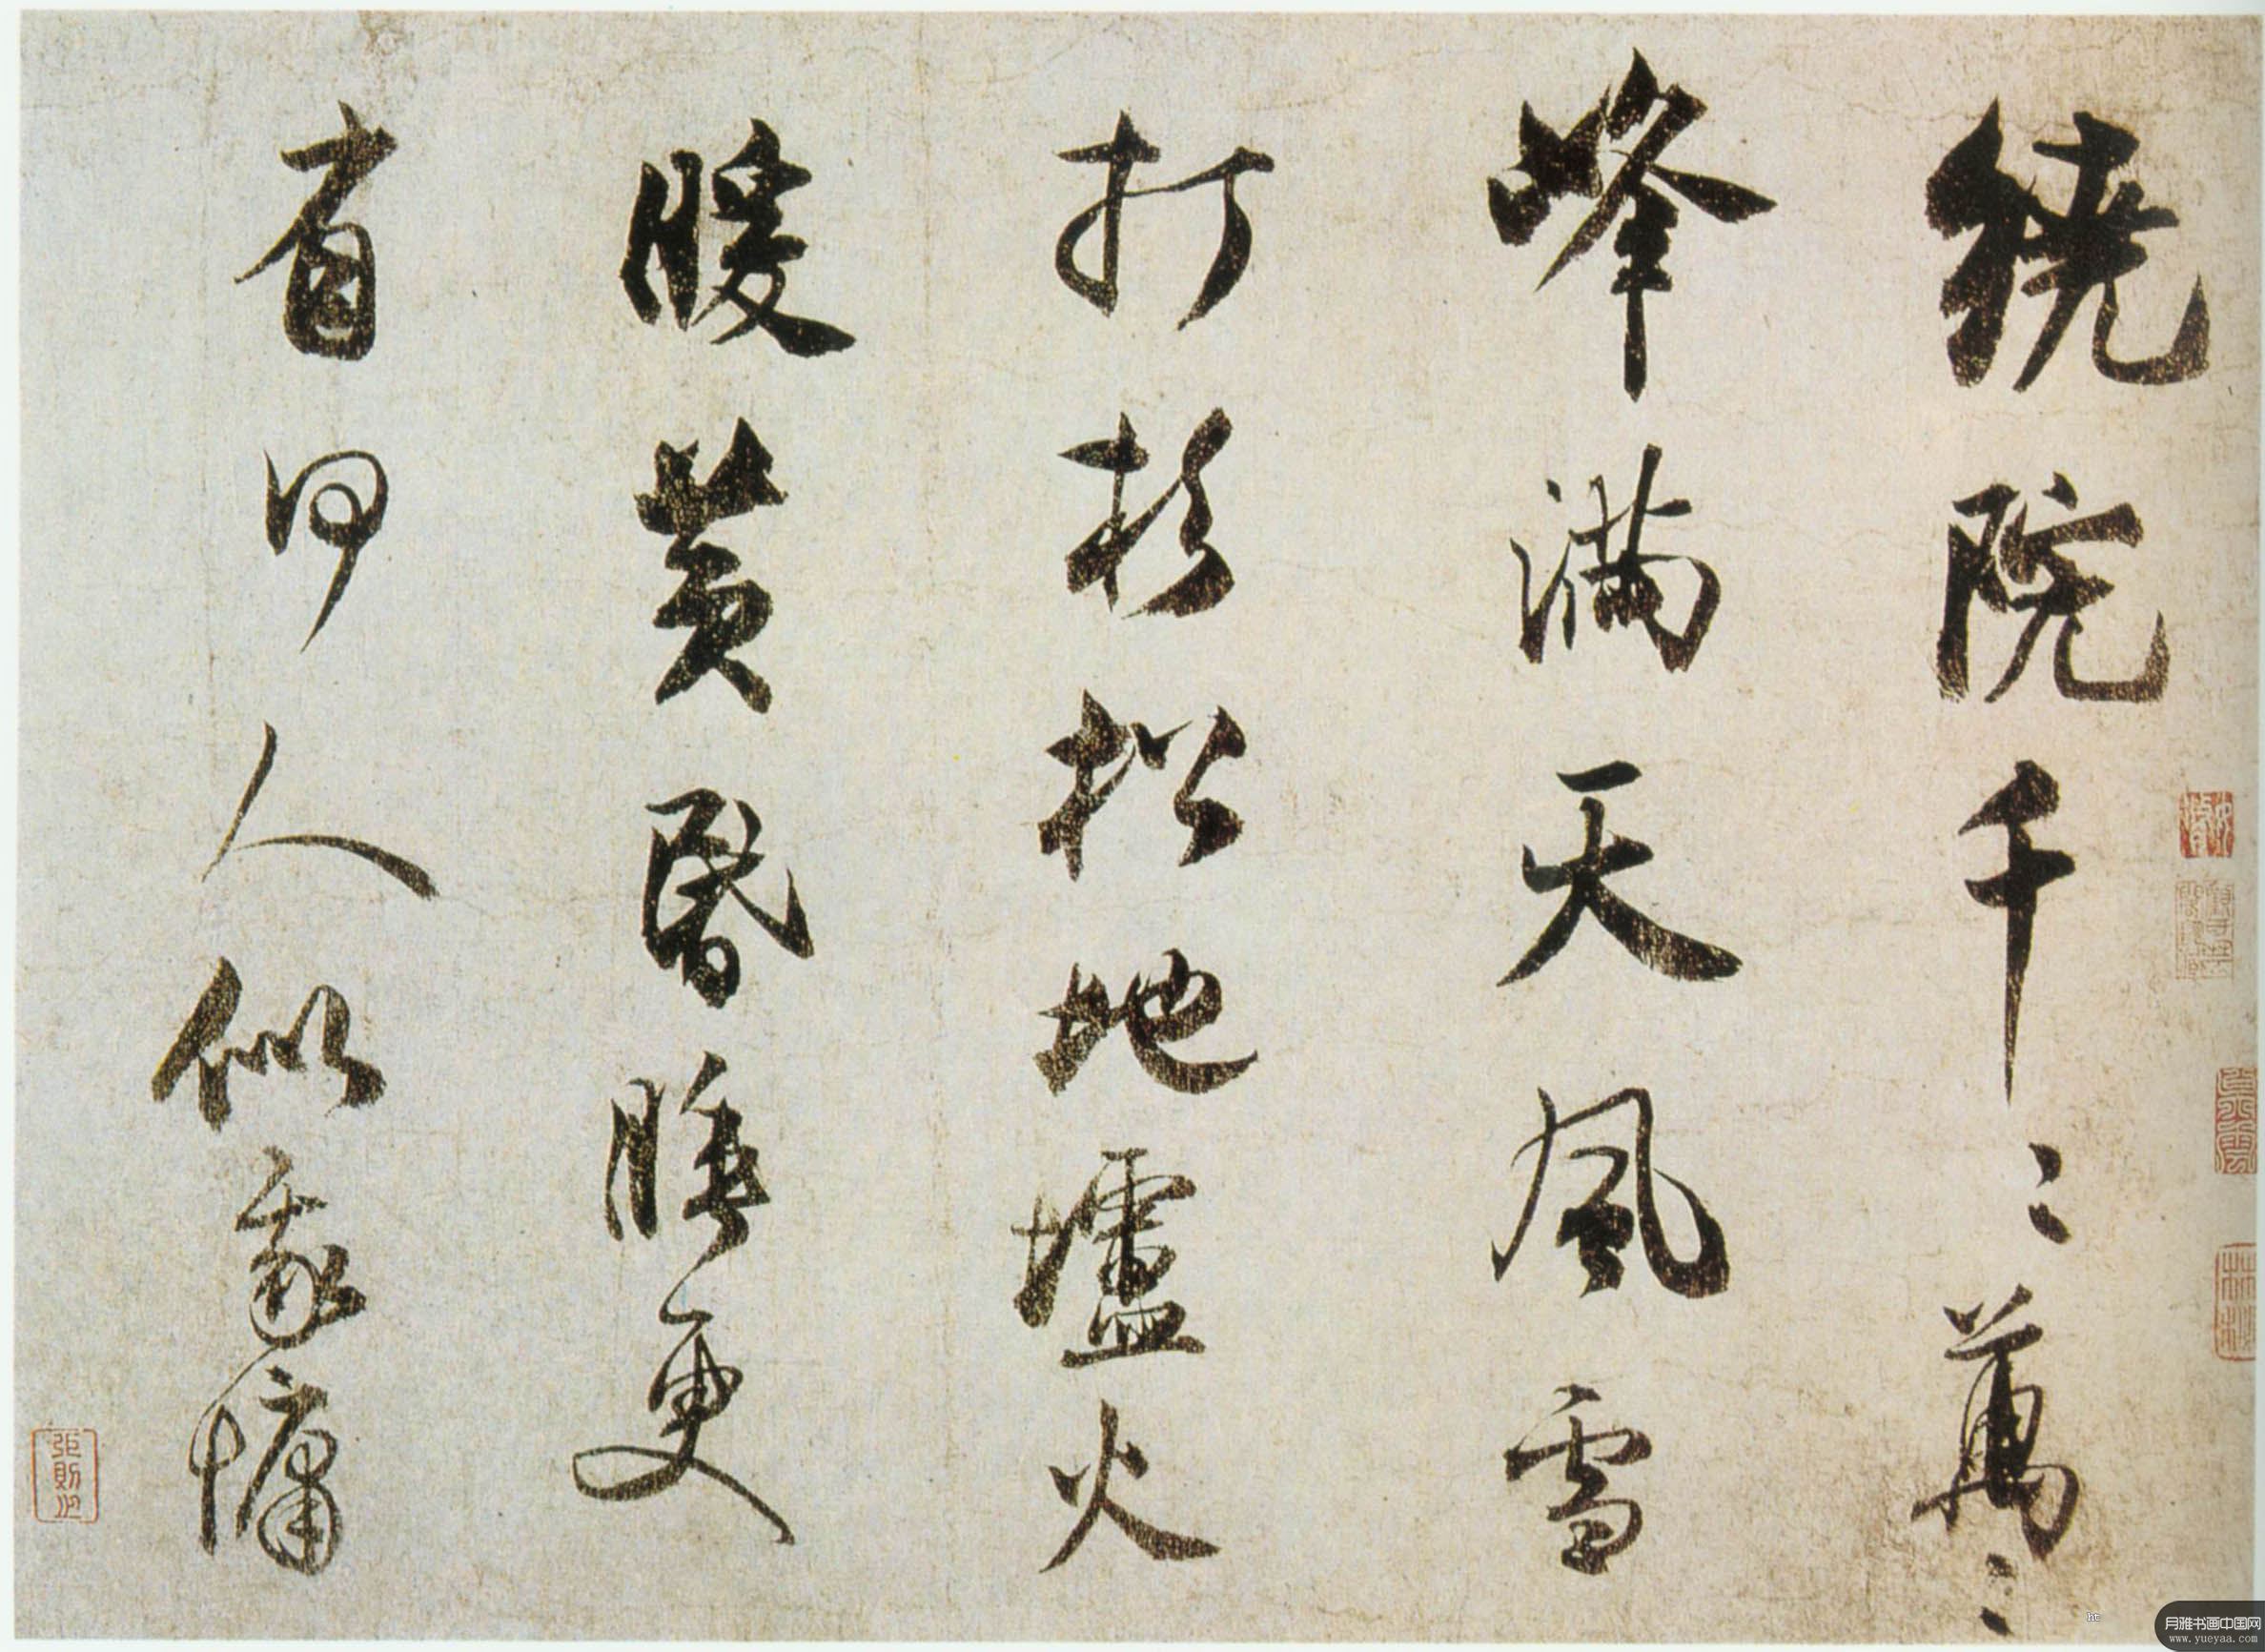 繞院千〻萬〻
峰滿天風雪
打杉松地壚火
暖黄昏睡更
有何人似我慵
張則之
月雅书画中国网
www.yueyaa.com